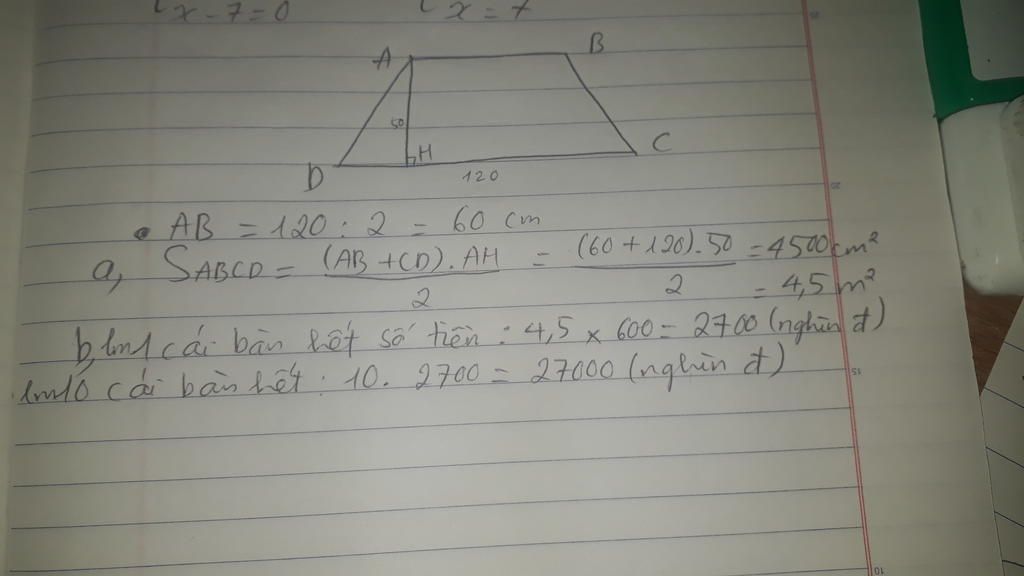 x - 7 = 0
x = 7
A
B
50
H
C
D
120
• AB = 120 : 2 = 60 cm
a, SABCD = (AB + CD) . AH / 2 = (60 + 120) . 50 / 2 = 4500 cm²
= 4,5 m²
b, làm 1 cái bàn hết số tiền : 4,5 x 600 = 2700 (nghìn đ)
làm 10 cái bàn hết : 10 . 2700 = 27000 (nghìn đ)
20
15
10